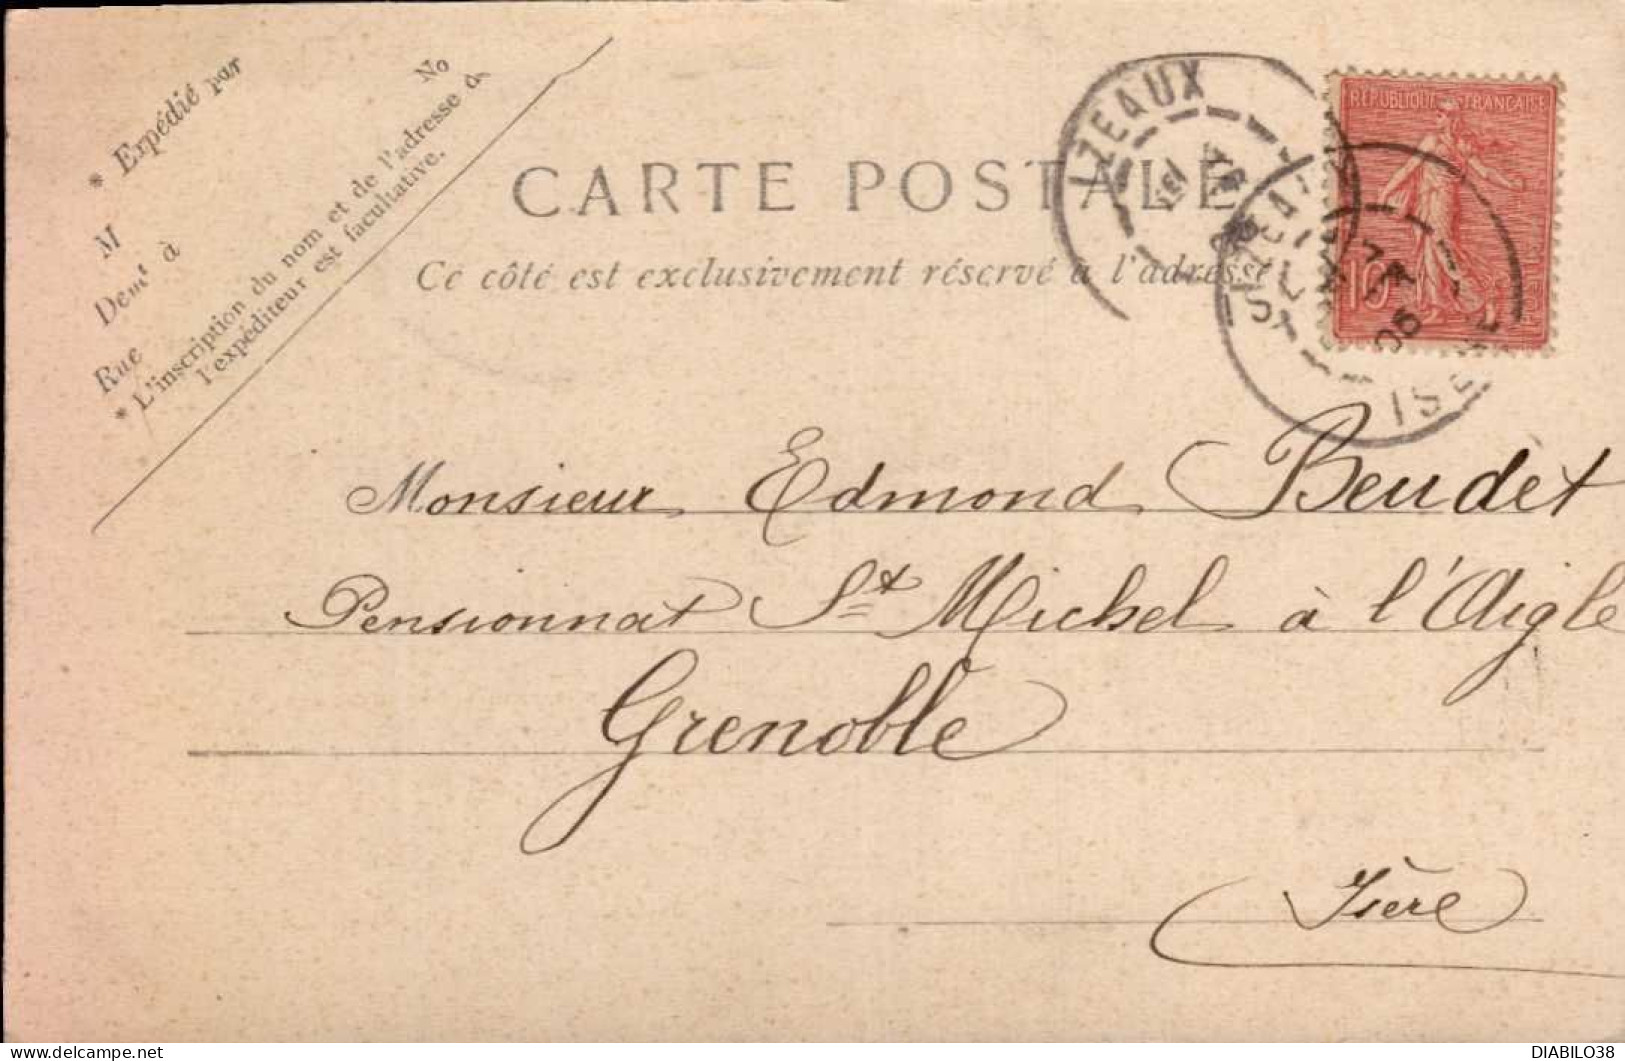 * Expédié par
No
M
Demt à
Rue
* L'inscription du nom et de l'adresse de
l'expéditeur est facultative.
CARTE POSTALE
Ce côté est exclusivement réservé à l'adresse
IZEAUX
IZEAUX
ISÈRE
06
REPUBLIQUE FRANÇAISE
10
Monsieur Edmond Beudet
Pensionnat St Michel à l'Aigle
Grenoble
Isère
DIABILO38